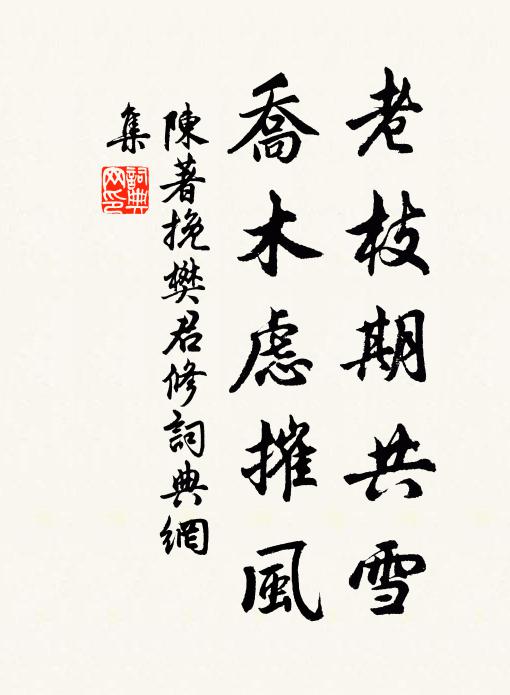 老枝期共雪
喬木慮摧風
陳著挽樊君修詞典網
集
詞典
网印